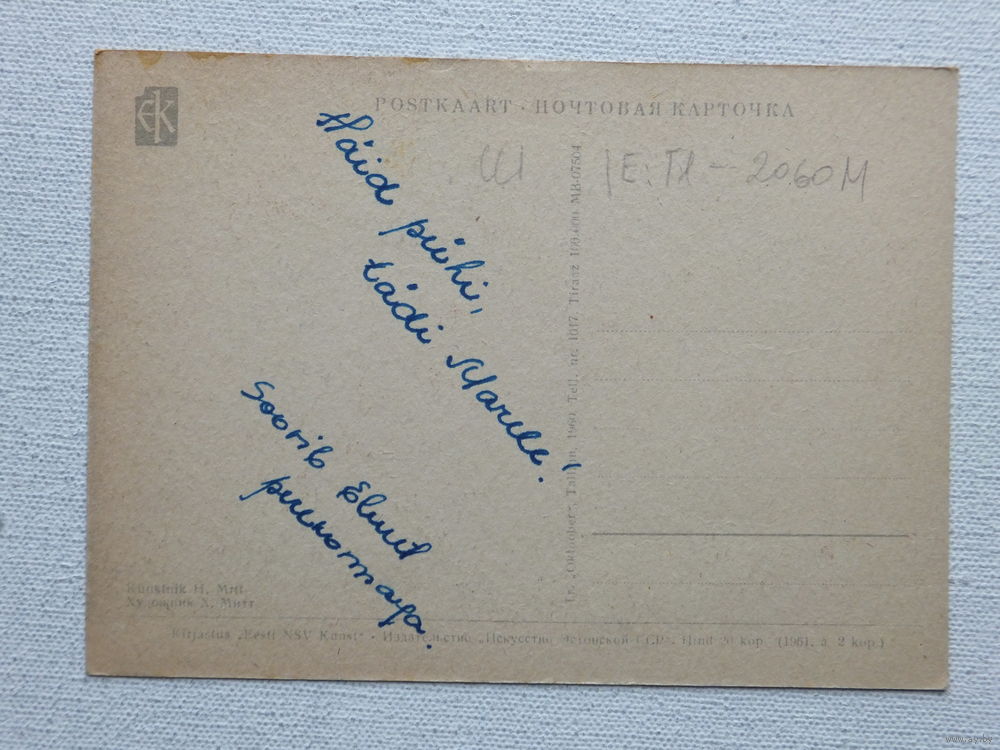 EK
POSTKAART · ПОЧТОВАЯ КАРТОЧКА
Häid pühi,
tädi Marele!
Soovib Elmut
perekonnaga.
E: TA - 2060M
Tallinn, 1960. Tell. nr. 1017. Tiraaž 100.000. MB-07504
Kunstnik H. Mitt
Художник Х. Митт
Kirjastus „Eesti NSV Kunst“ · Издательство „Искусство Эстонской ССР“. Hind 20 kop. (1961. a. 2 kop.)
www.ay.by